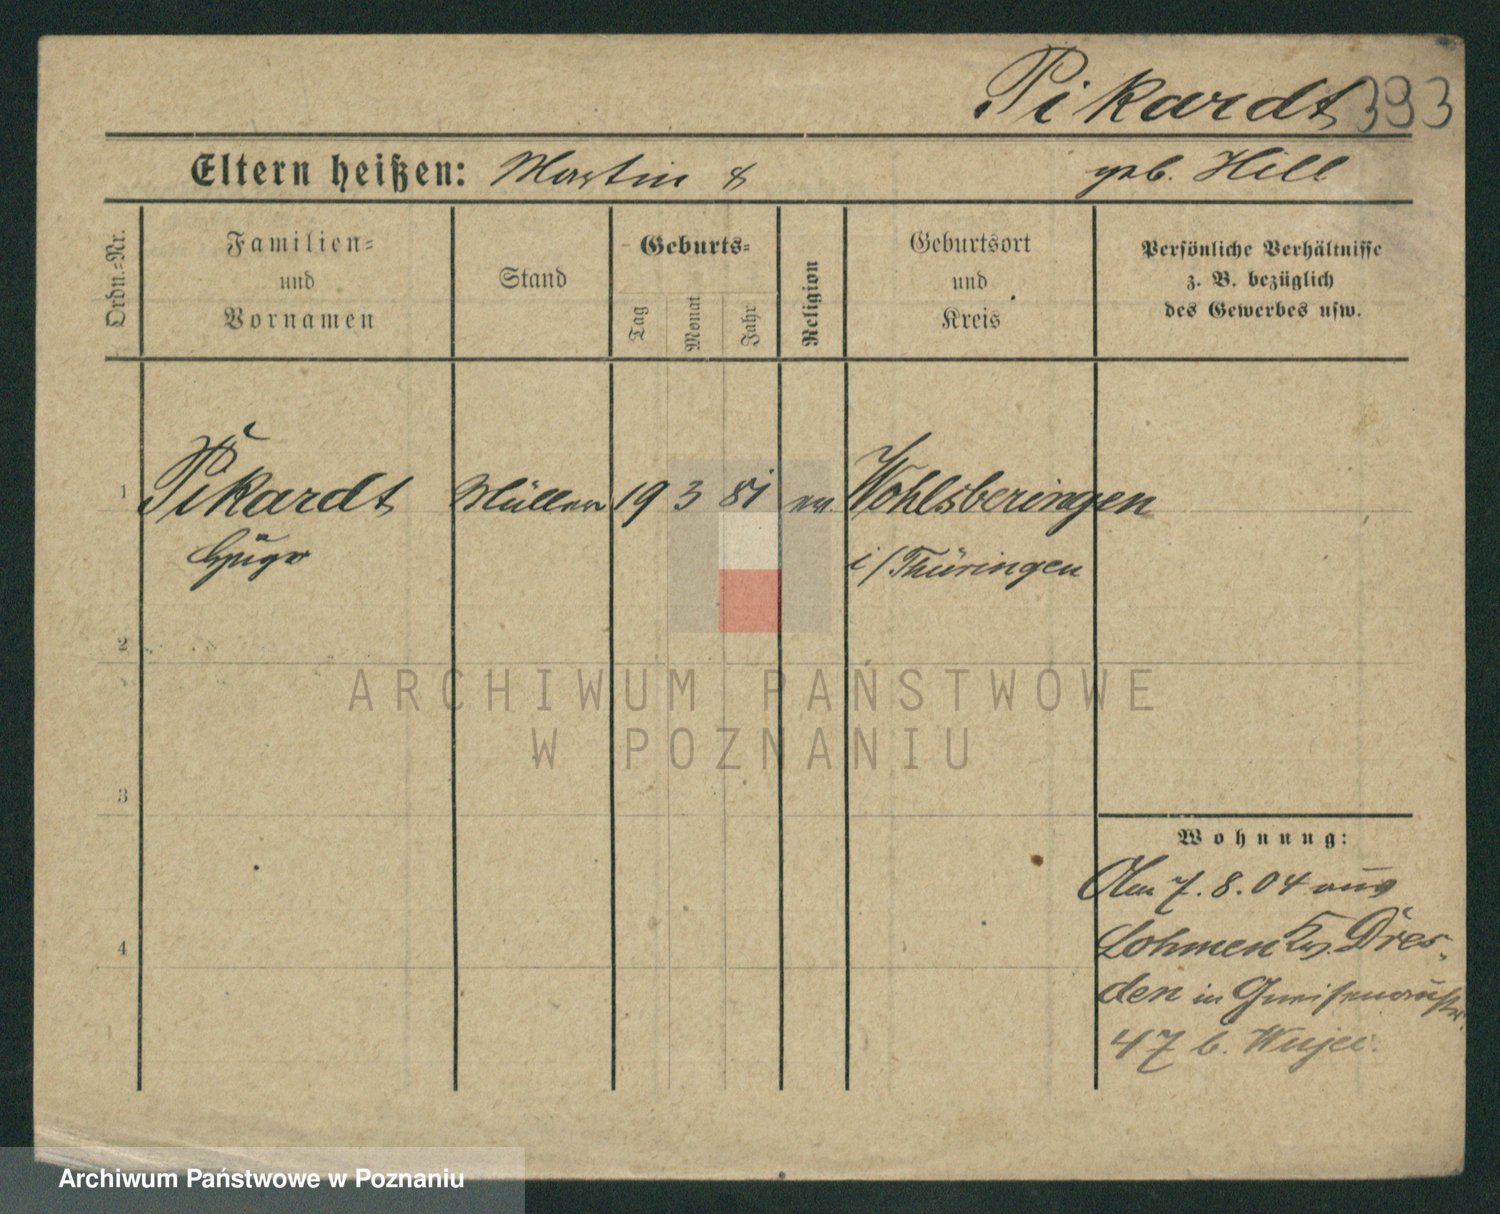 Pikardt 393
Eltern heißen: Martin & geb. Hill
Ordn.-Nr.
Familien-
und
Vornamen
Stand
Geburts-
Tag
Monat
Jahr
Religion
Geburtsort
und
Kreis
Persönliche Verhältnisse
z. B. bezüglich
des Gewerbes usw.
1 Pikardt Müller 19 3 81 ev. Wohlsberingen
Hugo i/Thüringen
2
ARCHIWUM PAŃSTWOWE
W POZNANIU
3
Wohnung:
Am 7.8.04 aus
Lohmen Dres-
4
den in Gneisenaustr.
47 b.
Archiwum Państwowe w Poznaniu